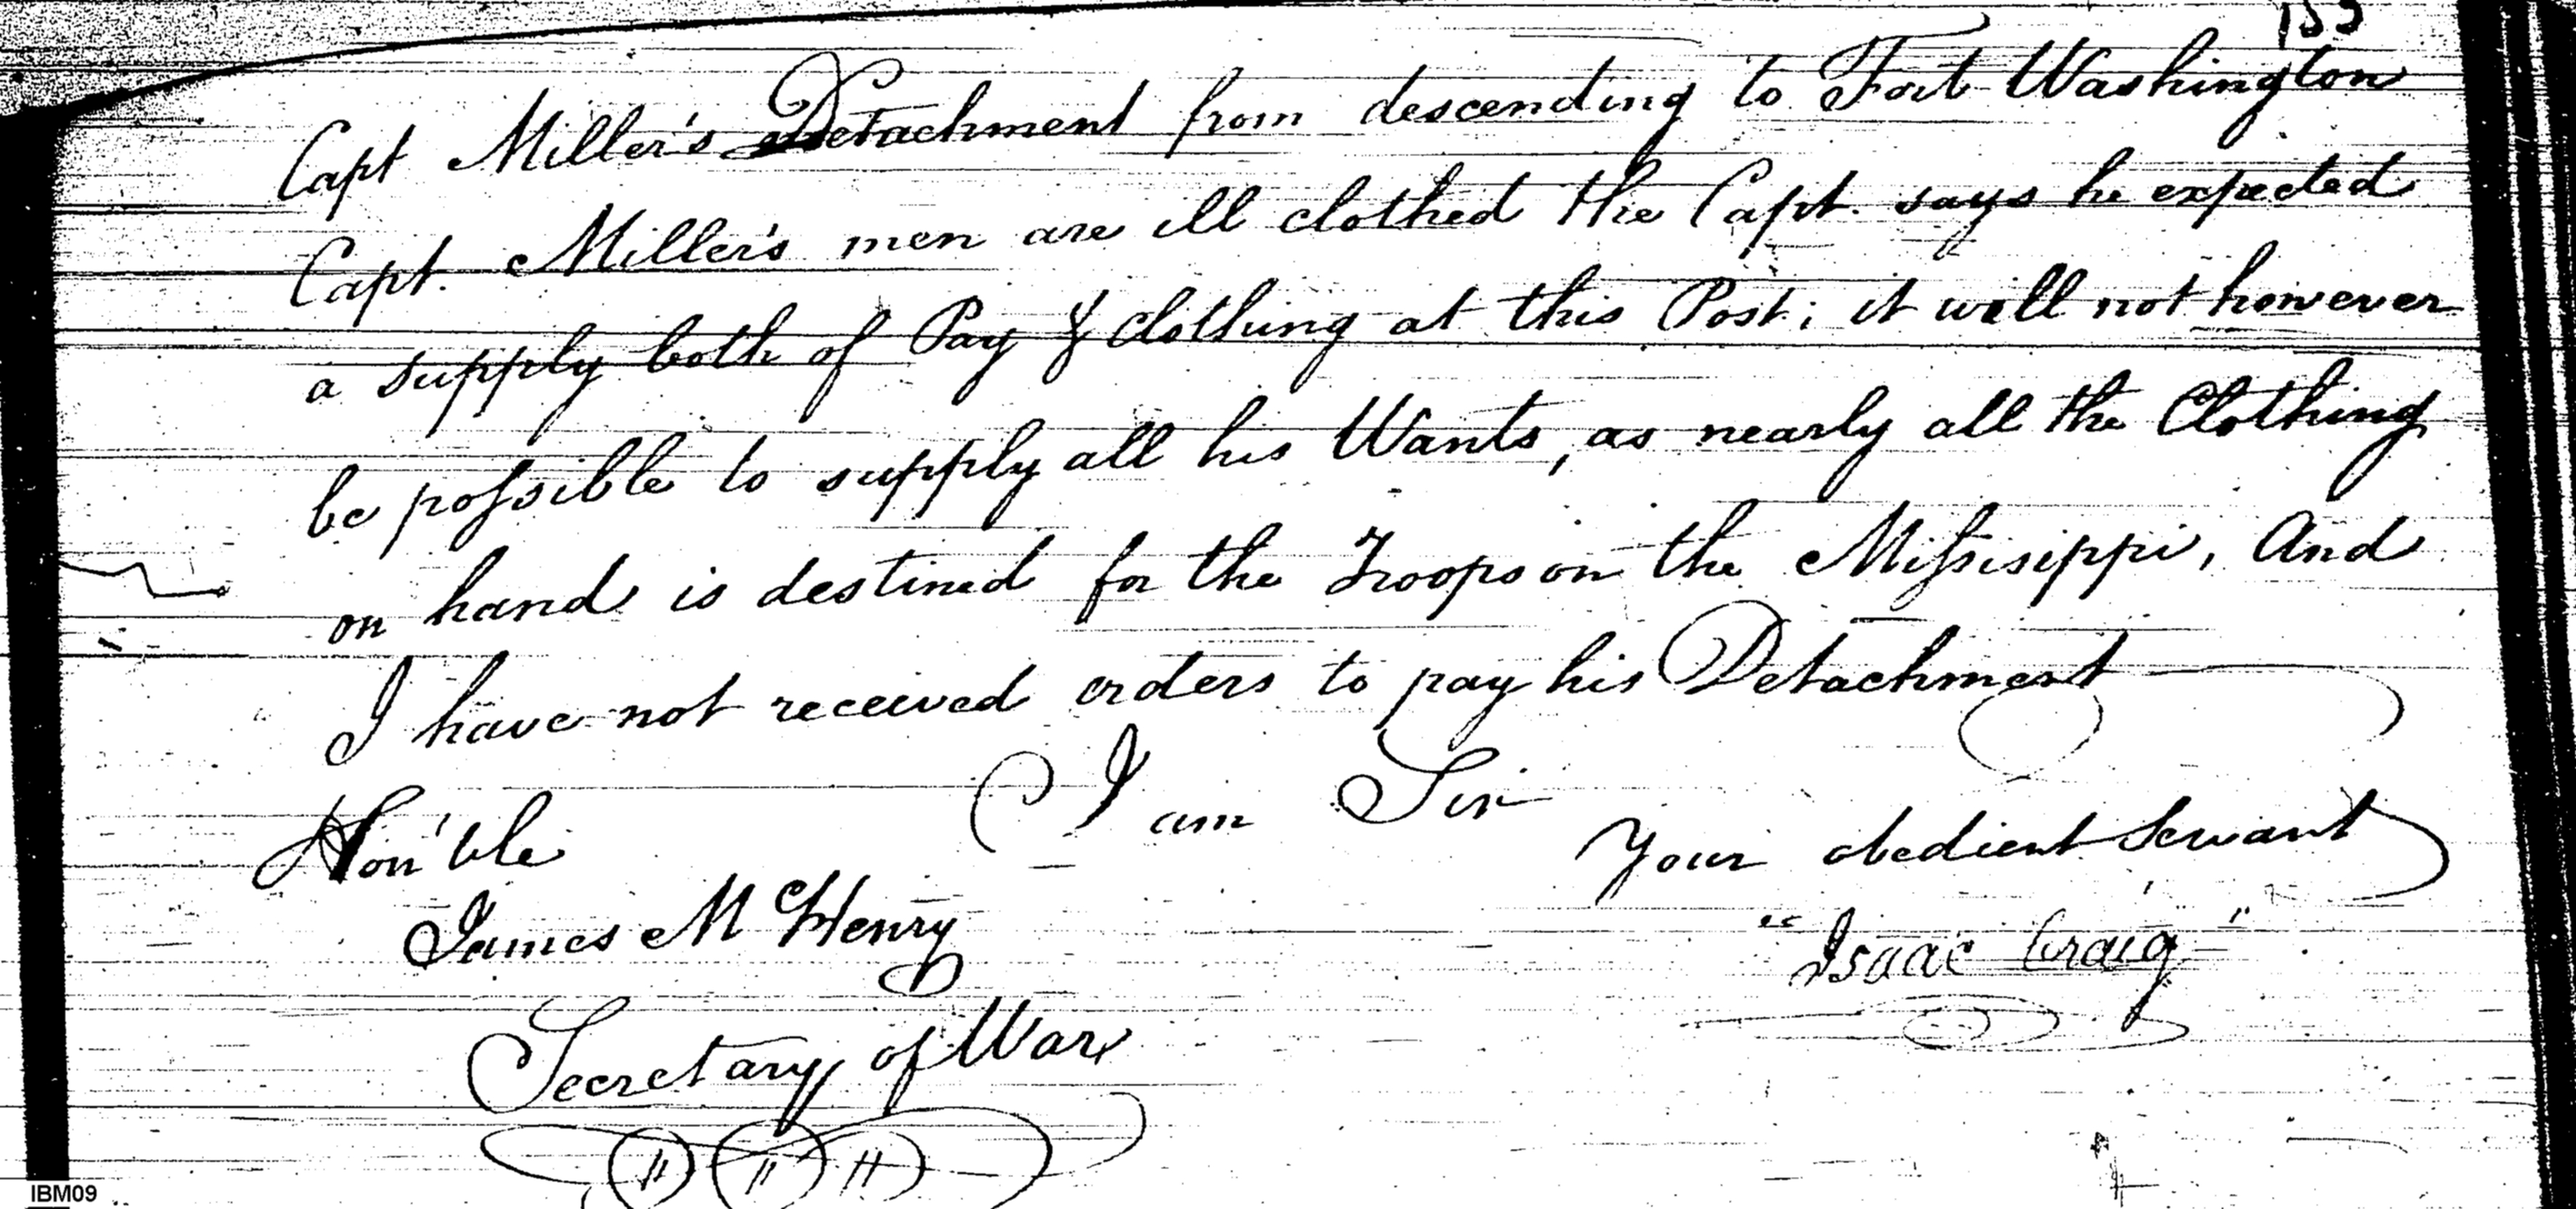 Capt Miller's Detachment from descending to Fort Washington
Capt. Miller's men are ill clothed the Capt. says he expected
a supply both of Pay & Clothing at this Post; it will not however
be possible to supply all his Wants, as nearly all the Clothing
on hand is destined for the Troops on the Missisippi, And
I have not received orders to pay his Detachment
I am Sir
Your obedient Servant
"Isaac Craig"
Hon'ble
James McHenry
Secretary of War
IBM09